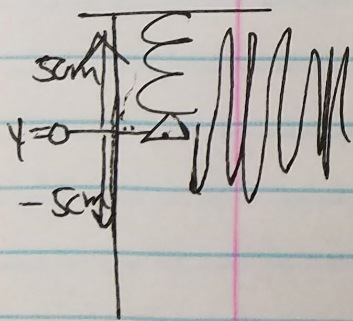 5cm
y=0
-5cm